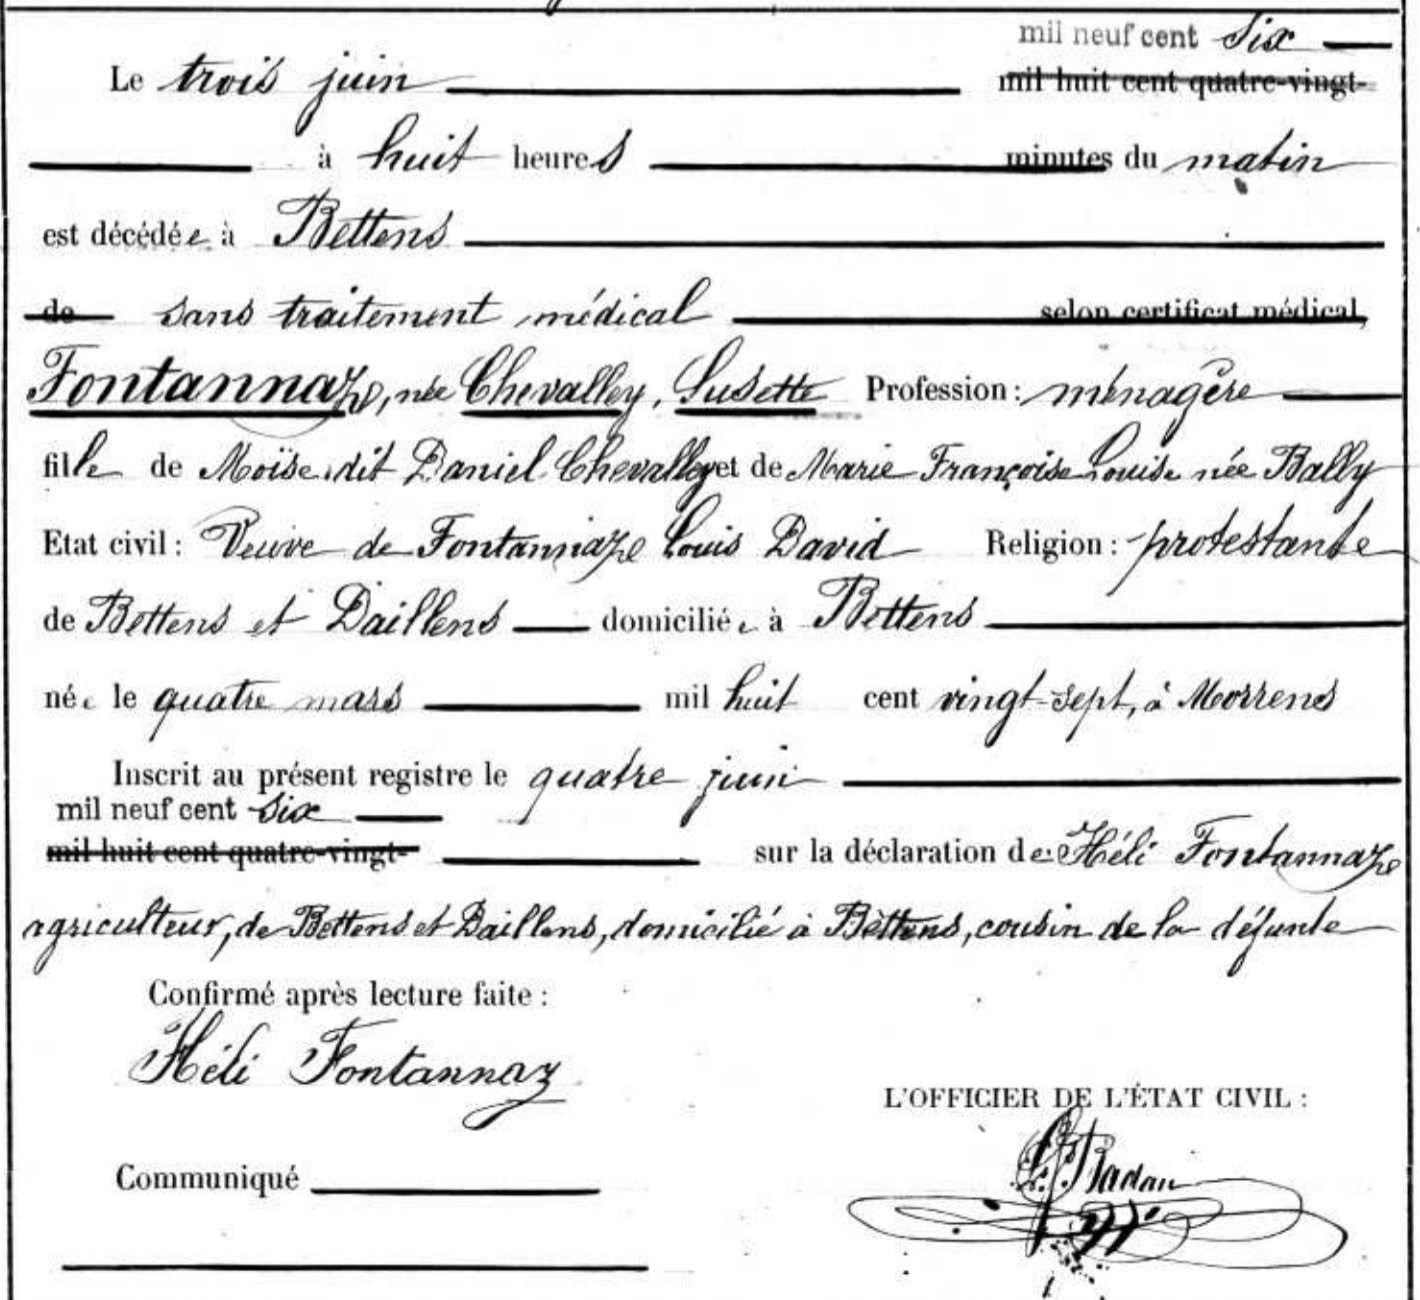 mil neuf cent six
Le trois juin mil huit cent quatre-vingt-
à huit heures minutes du matin
est décédée à Bettens
de sans traitement médical selon certificat médical,
Fontannaz, née Chevalley, Susette Profession : ménagère
fille de Moïse dit Daniel Chevalley et de Marie Françoise Louise née Bally
Etat civil : Veuve de Fontannaz Louis David Religion : protestante
de Bettens et Daillens domiciliée à Bettens
née le quatre mars mil huit cent vingt-sept, à Morrens
Inscrit au présent registre le quatre juin
mil neuf cent six
mil huit cent quatre-vingt- sur la déclaration de : Héli Fontannaz
agriculteur, de Bettens et Daillens, domicilié à Bettens, cousin de la défunte
Confirmé après lecture faite :
Héli Fontannaz
L'OFFICIER DE L'ÉTAT CIVIL :
Badan
Communiqué